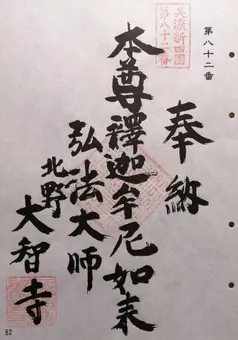 第八十二番
奉納
美濃新四国
第八十二番
本尊釋迦牟尼如来
弘法大師
北野
大智寺
82